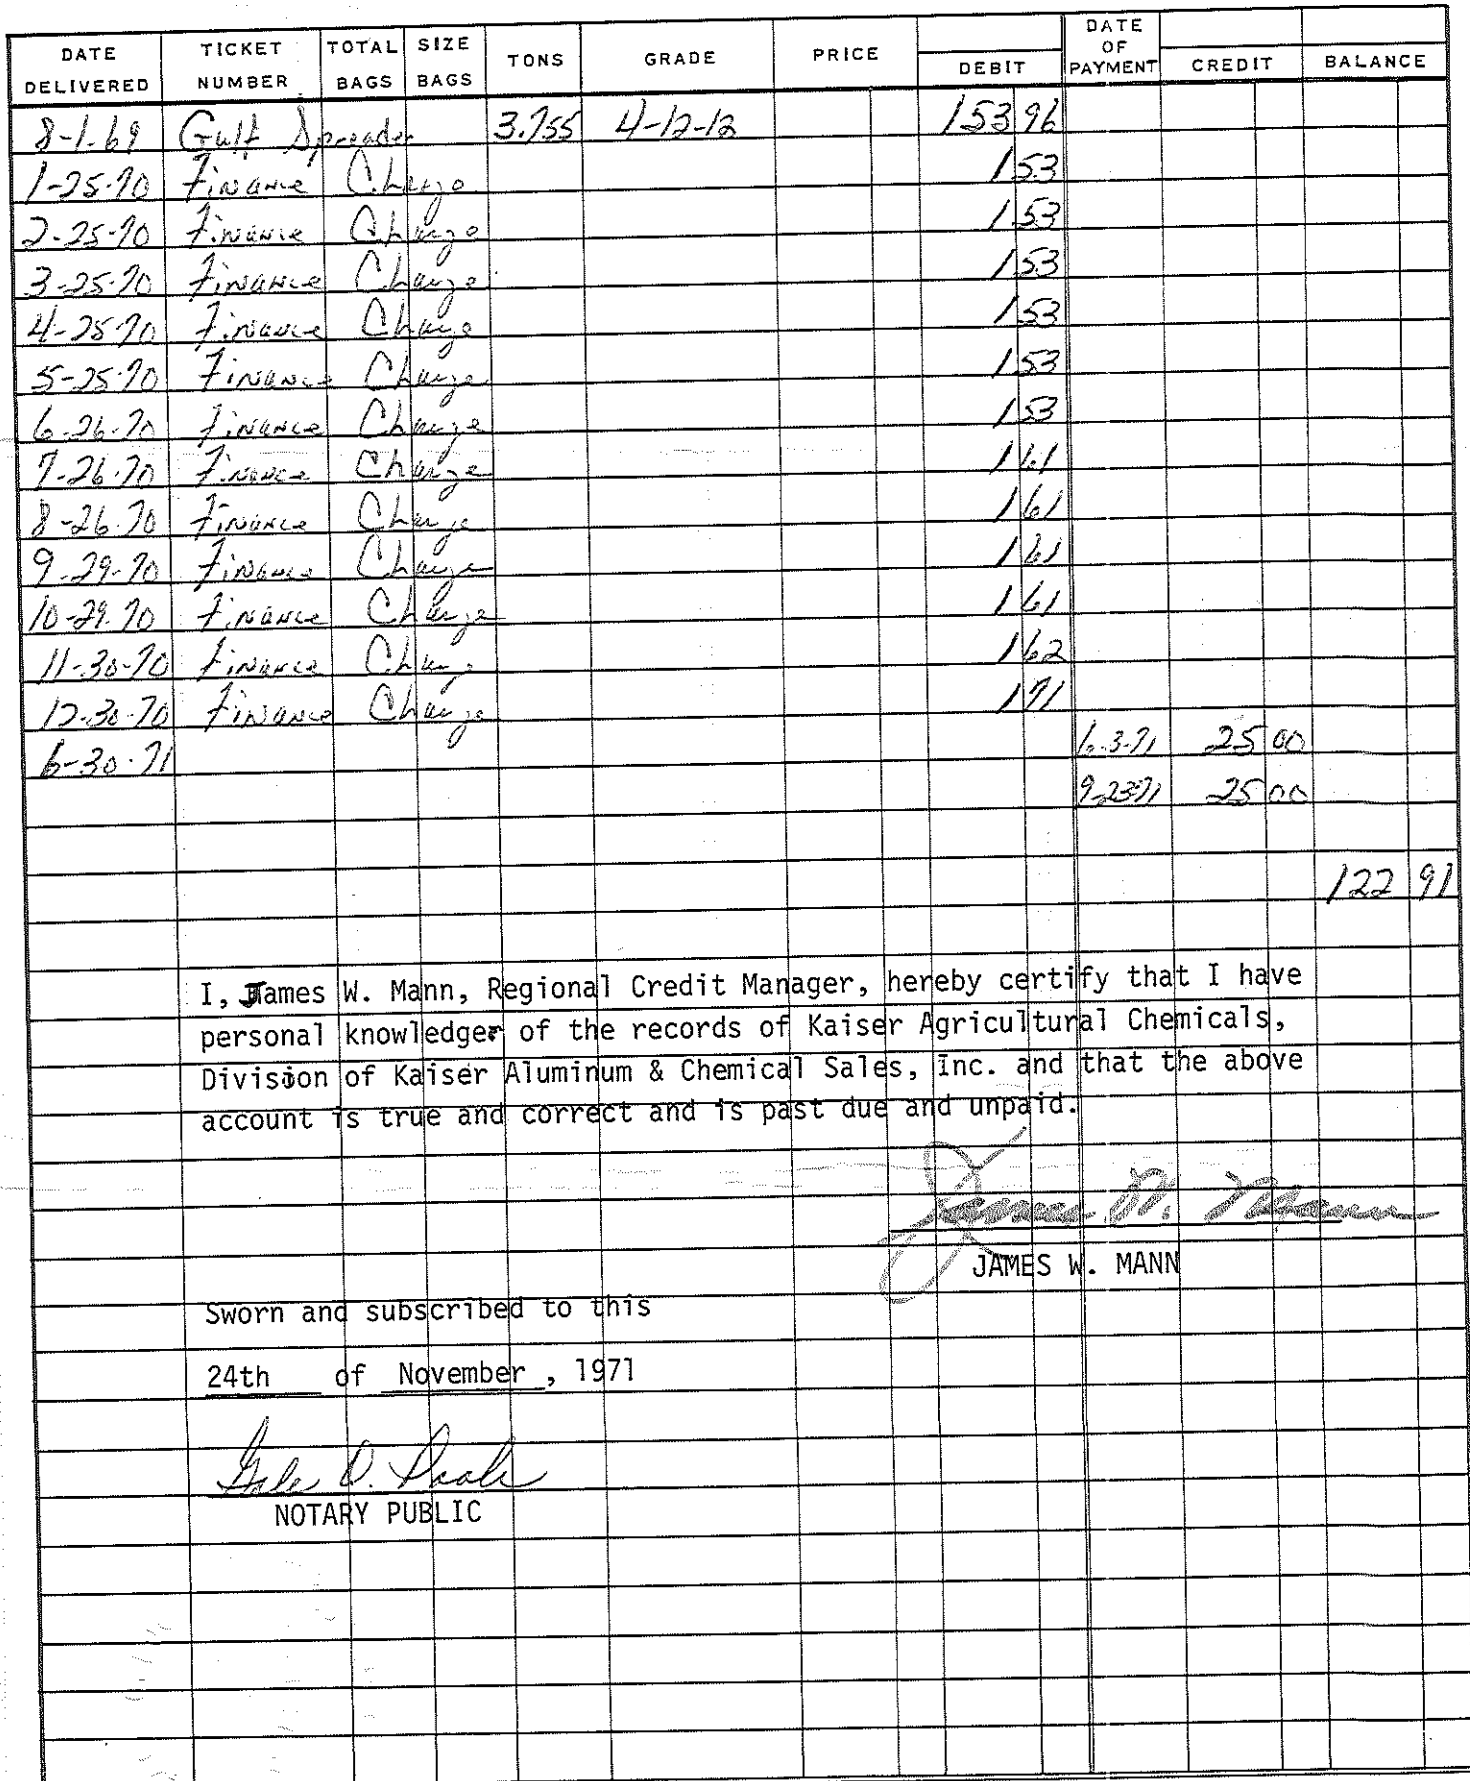 DATE DELIVERED TICKET NUMBER TOTAL BAGS SIZE BAGS TONS GRADE PRICE DEBIT DATE OF PAYMENT CREDIT BALANCE
8-1-69 Gulf Spreader 3.755 4-12-12 153 96
1-25-70 Finance Charge 1 53
2-25-70 Finance Charge 1 53
3-25-70 Finance Charge 1 53
4-25-70 Finance Charge 1 53
5-25-70 Finance Charge 1 53
6-26-70 Finance Charge 1 53
7-26-70 Finance Charge 1 61
8-26-70 Finance Charge 1 61
9-29-70 Finance Charge 1 61
10-29-70 Finance Charge 1 61
11-30-70 Finance Charge 1 62
12-30-70 Finance Charge 1 71
6-30-71 6-3-71 25 00
9-23-71 25 00
122 91
I, James W. Mann, Regional Credit Manager, hereby certify that I have
personal knowledger of the records of Kaiser Agricultural Chemicals,
Division of Kaiser Aluminum & Chemical Sales, Inc. and that the above
account is true and correct and is past due and unpaid.
James W. Mann
JAMES W. MANN
Sworn and subscribed to this
24th of November , 1971
NOTARY PUBLIC